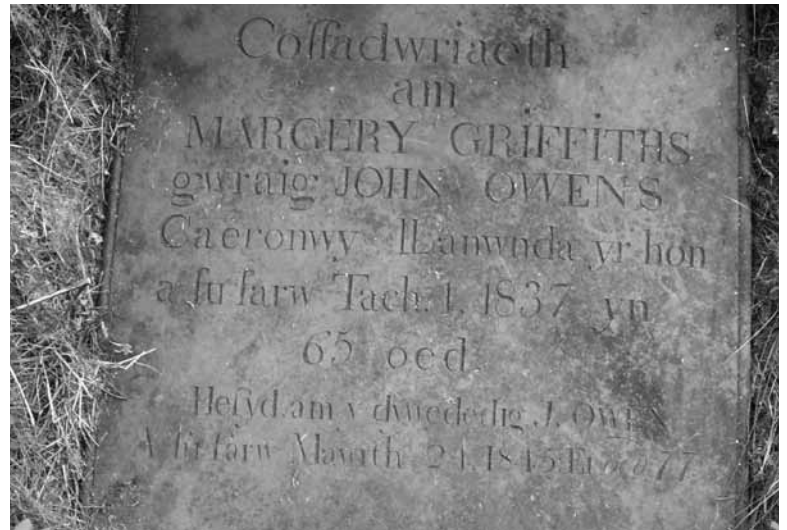 Coffadwriaeth
am
MARGERY GRIFFITHS
gwraig JOHN OWENS
Caeronwy llanwnda yr hon
a fu farw Tach. 1, 1837 yn
65 oed
Hefyd am y dywededig J. OWEN
A fu farw Mawrth 24, 1845 Ei oed 77